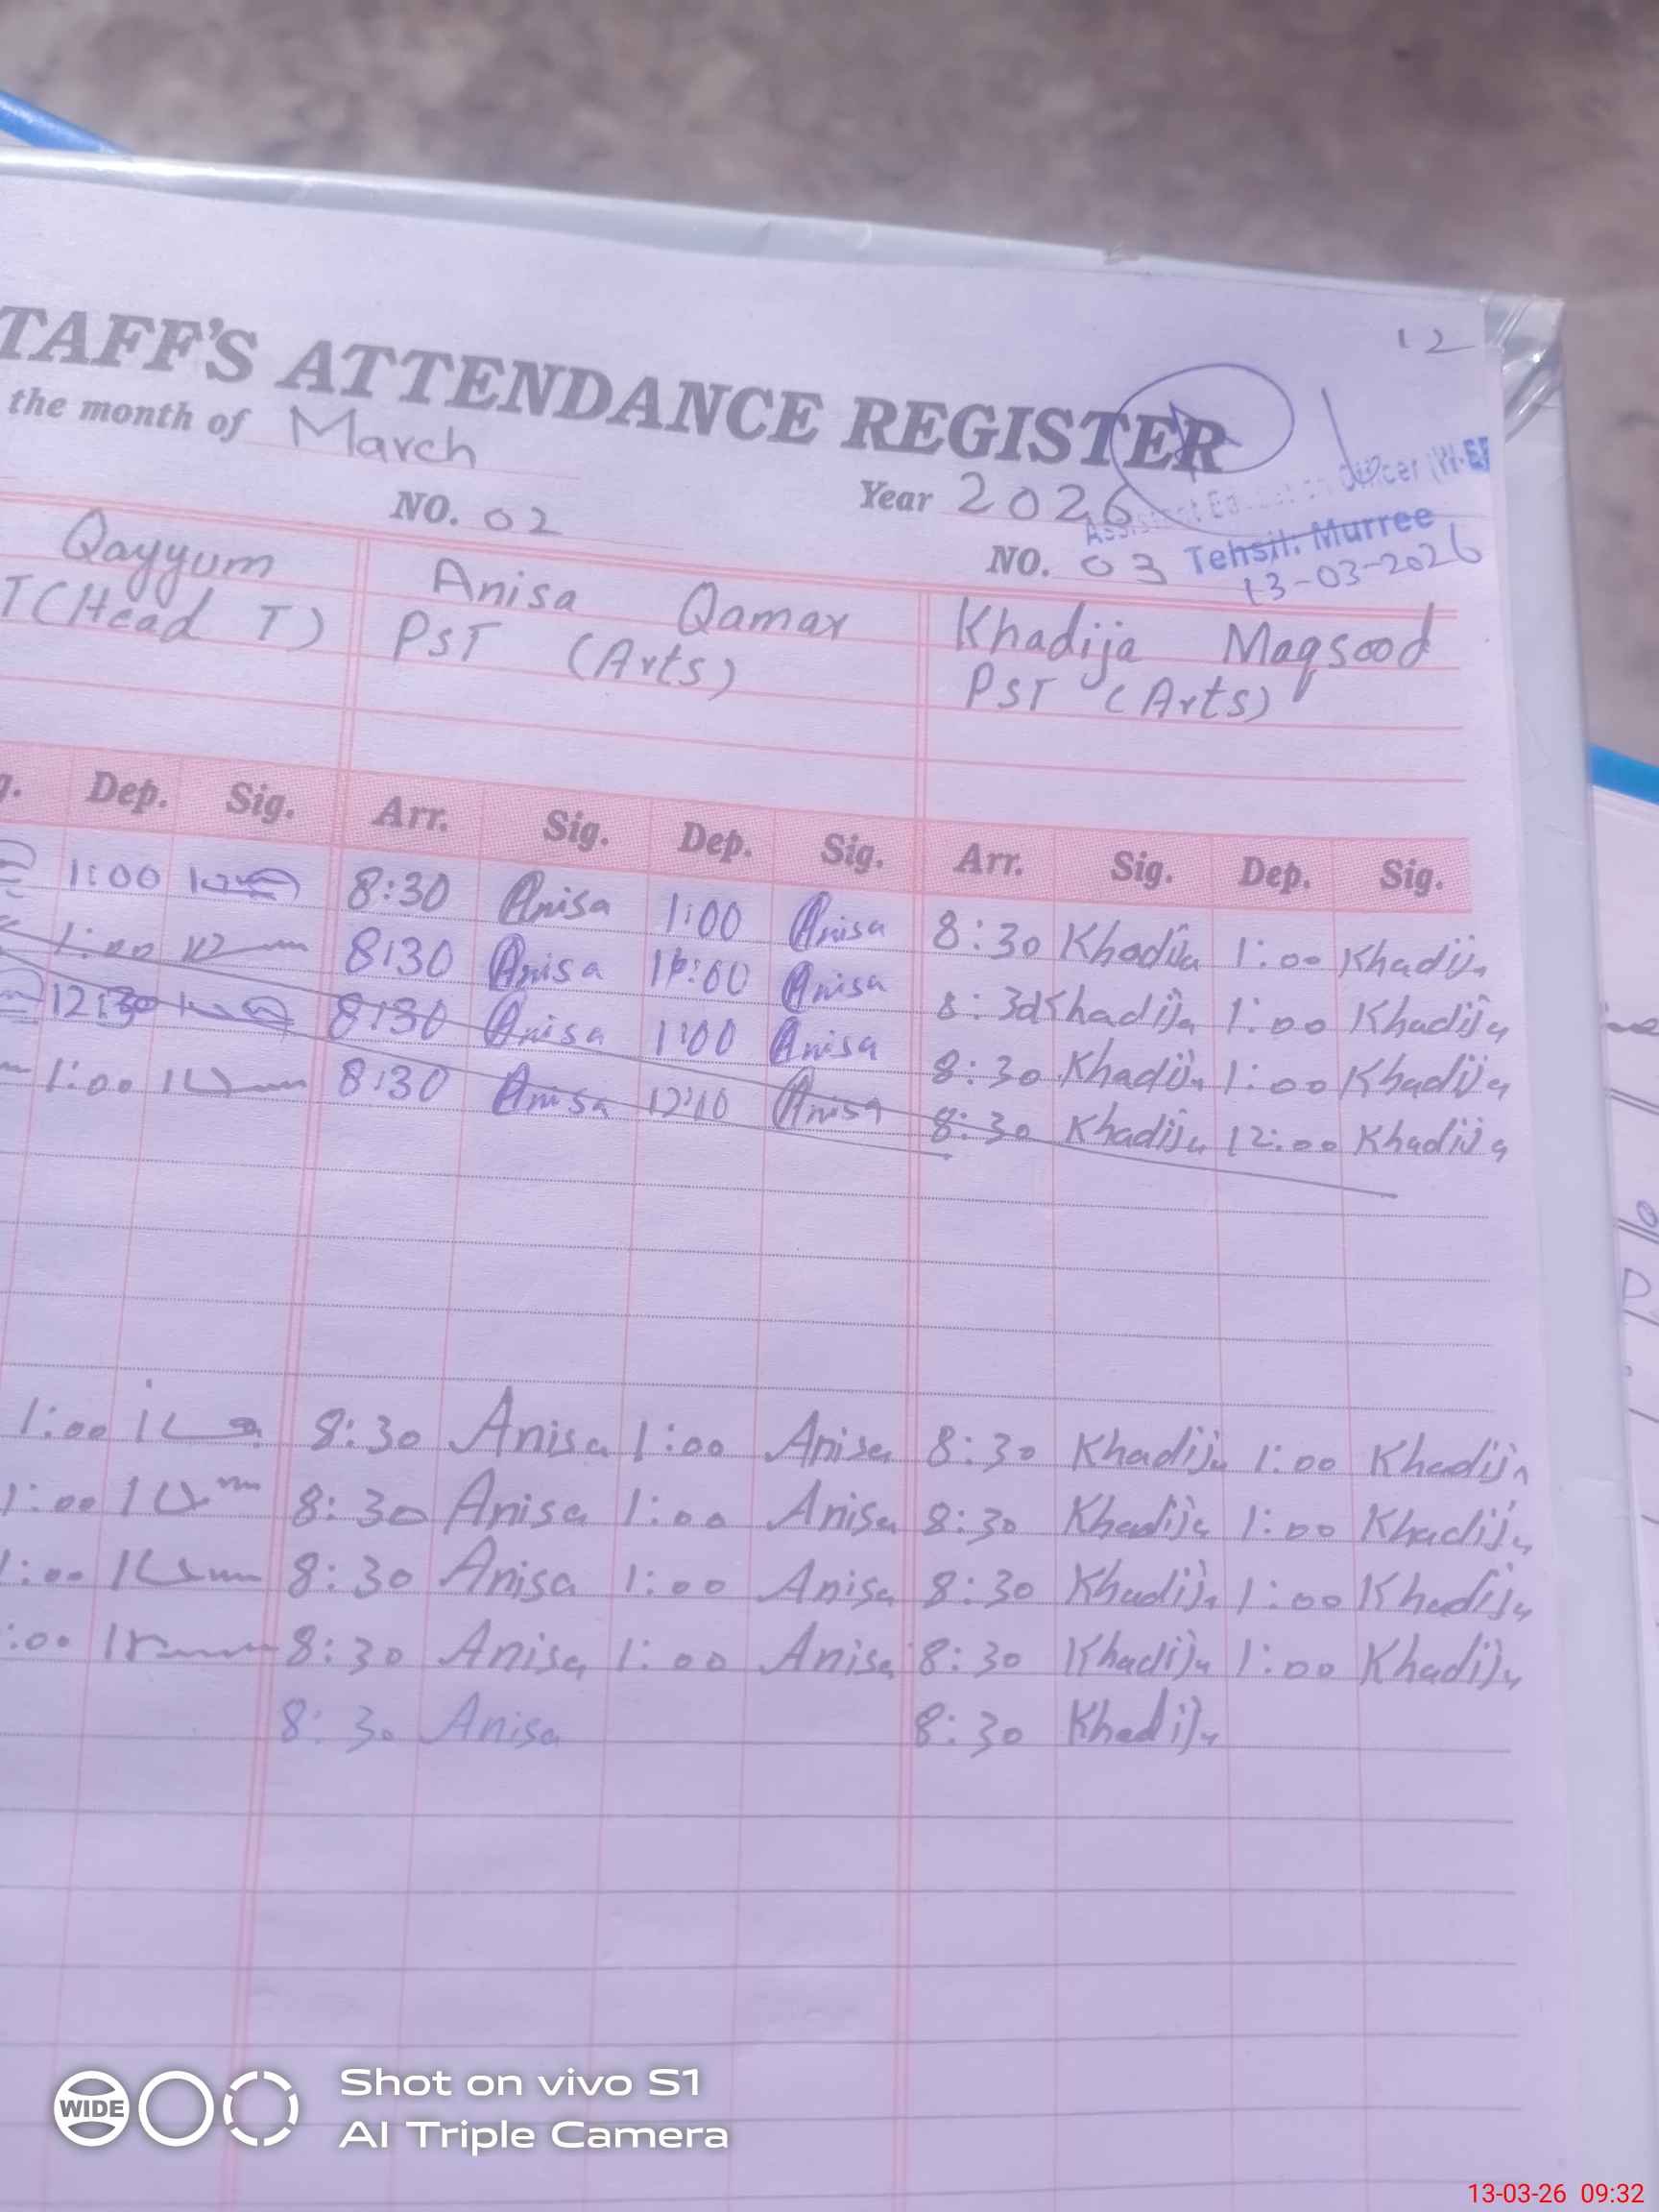 12
TAFF'S ATTENDANCE REGISTER
the month of March
Year 2026
Officer
Tehsil: Murree
13-03-2026
NO. 02
NO. 03
Qayyum
T (Head T)
Anisa Qamar
PST (Arts)
Khadija Maqsood
PST (Arts)
g. Dep. Sig. Arr. Sig. Dep. Sig. Arr. Sig. Dep. Sig.
1:00 8:30 Anisa 1:00 Anisa 8:30 Khadija 1:00 Khadija
1:00 8:30 Anisa Anisa 8:30 Khadija 1:00 Khadija
12:30 8:30 Anisa 1:00 Anisa 8:30 Khadija 1:00 Khadija
1:00 8:30 Anisa Anisa 8:30 Khadija 12:00 Khadija
1:00 8:30 Anisa 1:00 Anisa 8:30 Khadija 1:00 Khadija
1:00 8:30 Anisa 1:00 Anisa 8:30 Khadija 1:00 Khadija
1:00 8:30 Anisa 1:00 Anisa 8:30 Khadija 1:00 Khadija
:00 8:30 Anisa 1:00 Anisa 8:30 Khadija 1:00 Khadija
8:30 Anisa 8:30 Khadija
WIDE
Shot on vivo S1
AI Triple Camera
13-03-26 09:32